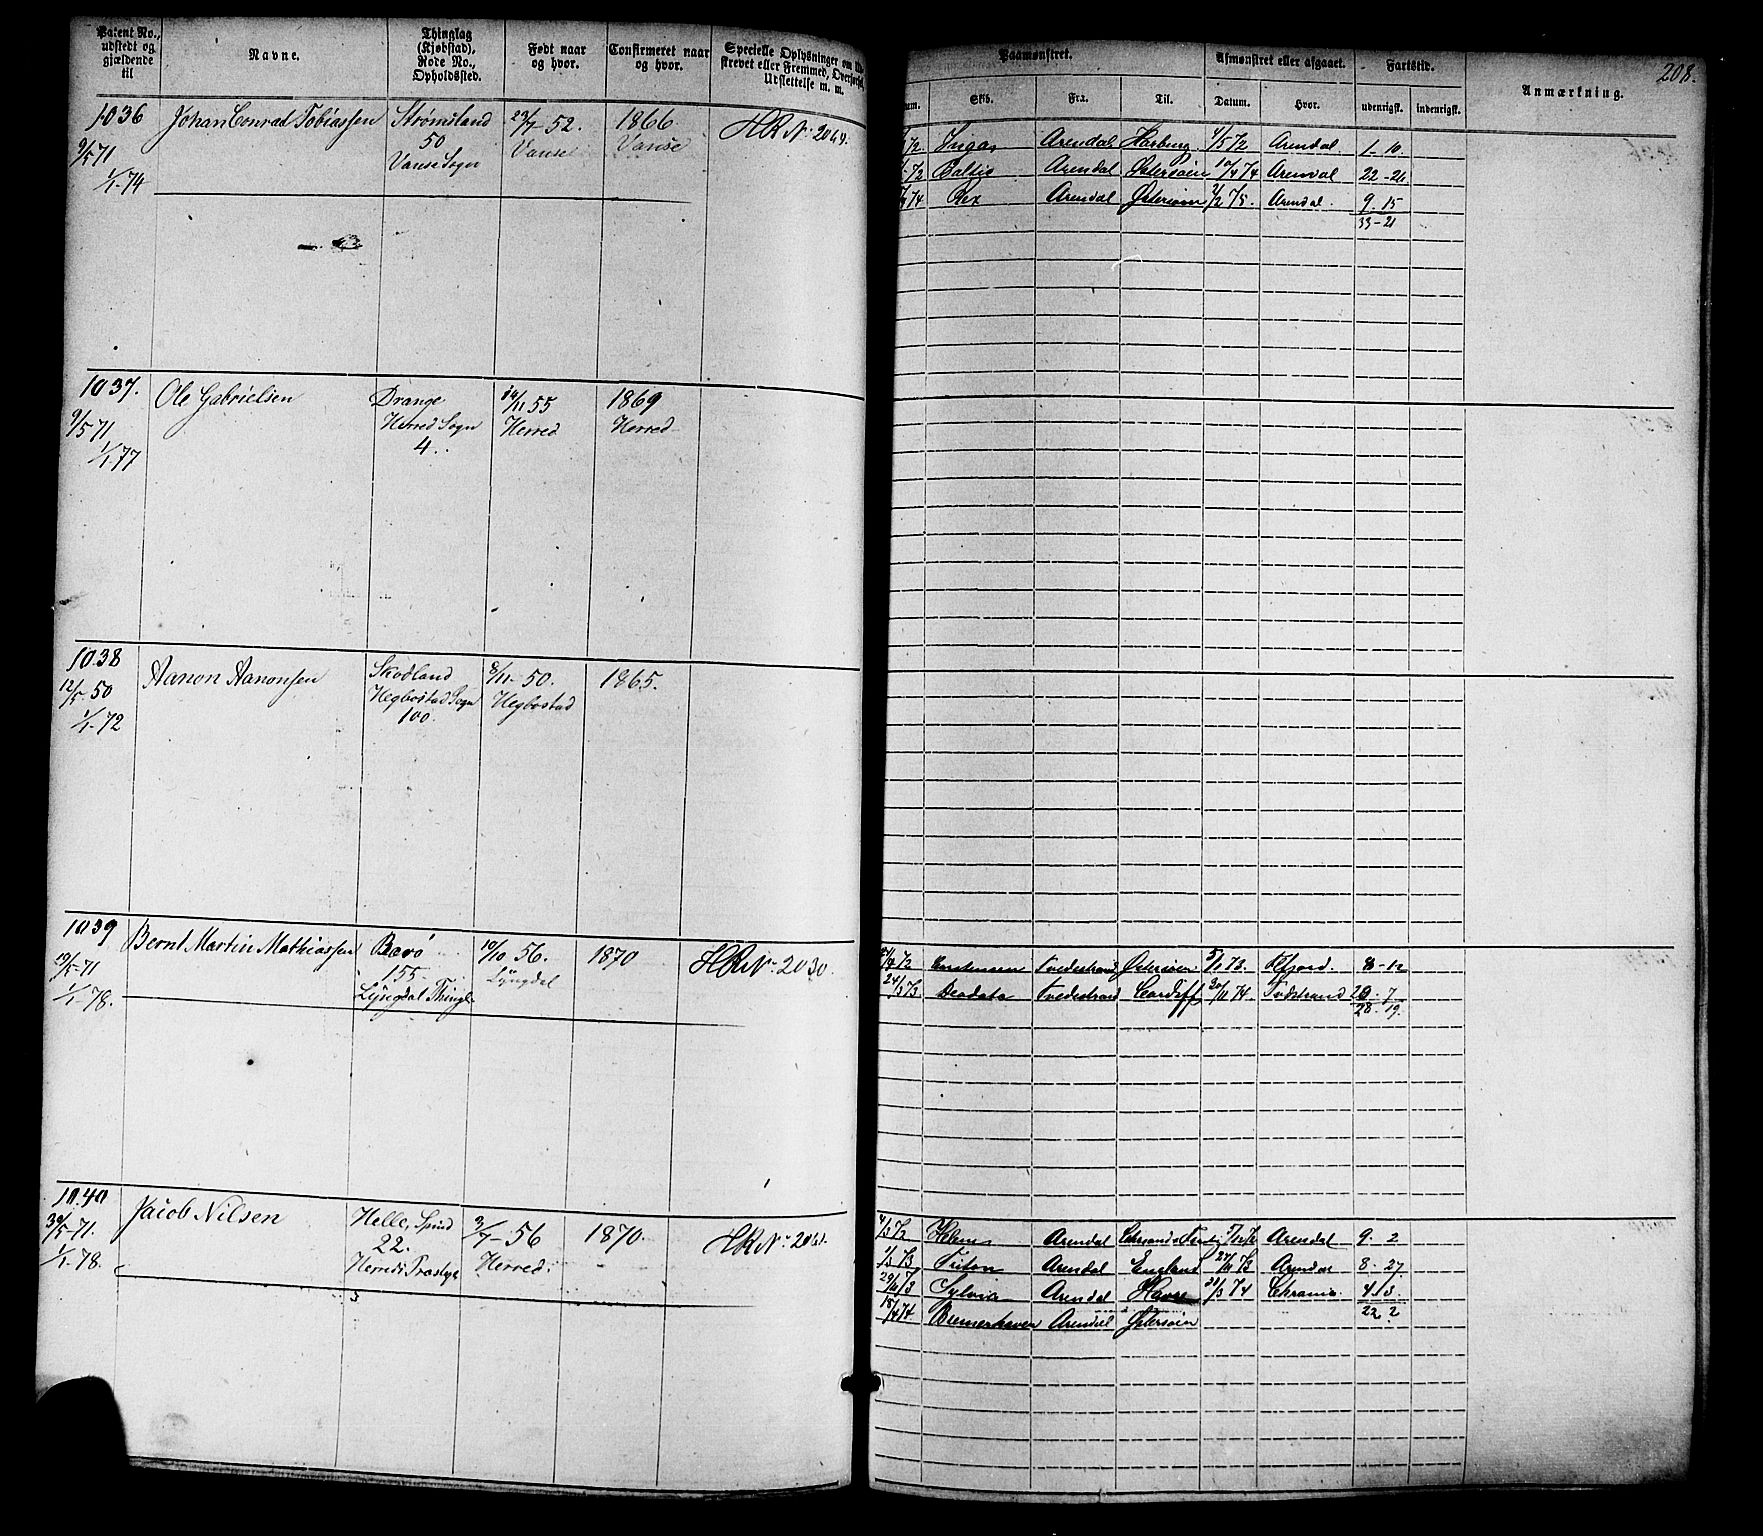 Patent No., udstedt og gjældende til
Navne.
Thinglag (Kjøbstad), Rode No., Opholdssted.
Født naar og hvor.
Confirmeret naar og hvor.
Specielle Oplysninger om
strevet eller Fremmed, Overførsel,
Udslettelse m. m.
Paamønstret.
Afmønstret eller afgaaet.
Fartstid.
208.
Skib.
Fra.
Til.
Datum.
Hvor.
udenrigsk.
indenrigsk.
Anmærkning.
1036 Johan Conrad Tobiassen Strømsland 23/7-52. 1866 HR N. 2064.
9/5 71 50 Vanse Vanse
1/1-74 Vanse Sogn
72 Arendal Harburg 4/5 72 Arendal 1-10.
-72 Baltic Arendal Østersøen 10/4 74 Arendal 22-26
74 Rex Arendal Østersøen 1/2 75. Arendal. 9 15
33-21
1037. Ole Gabrielsen Drange 14/11 55 1869
9/5 71 Herred Sogn Herred Herred
1/1-77 4.
1038 Aanon Aanonsen Skodland 8/11-50. 1865.
12/5-50 Hegbostad Sogn Hegbostad
1/1-72 100.
1039 Bernt Martin Mathiassen 10/10 56. 1870 HR N. 2030.
19/5-71 155 Lyngdal
1/1-78. Lyngdal Thingl.
72 Tvedestrand Østersøen 8-12
24/3 73 Deodata Tvedestrand Cardiff 30/11 74. 20. 7
28. 19.
1040 Jacob Nilsen Helle, 3/7-56 1870.
30/5-71. 22. Herred.
1/1-78.
4/3 72 Arendal Arendal 9. 2
1/3 73 Triton Arendal England 8-27
29/11 73 Sylvia Arendal Havre 21/3 74 Chrania
18/4 74 Bremerhaven Arendal Østersøen 22 2